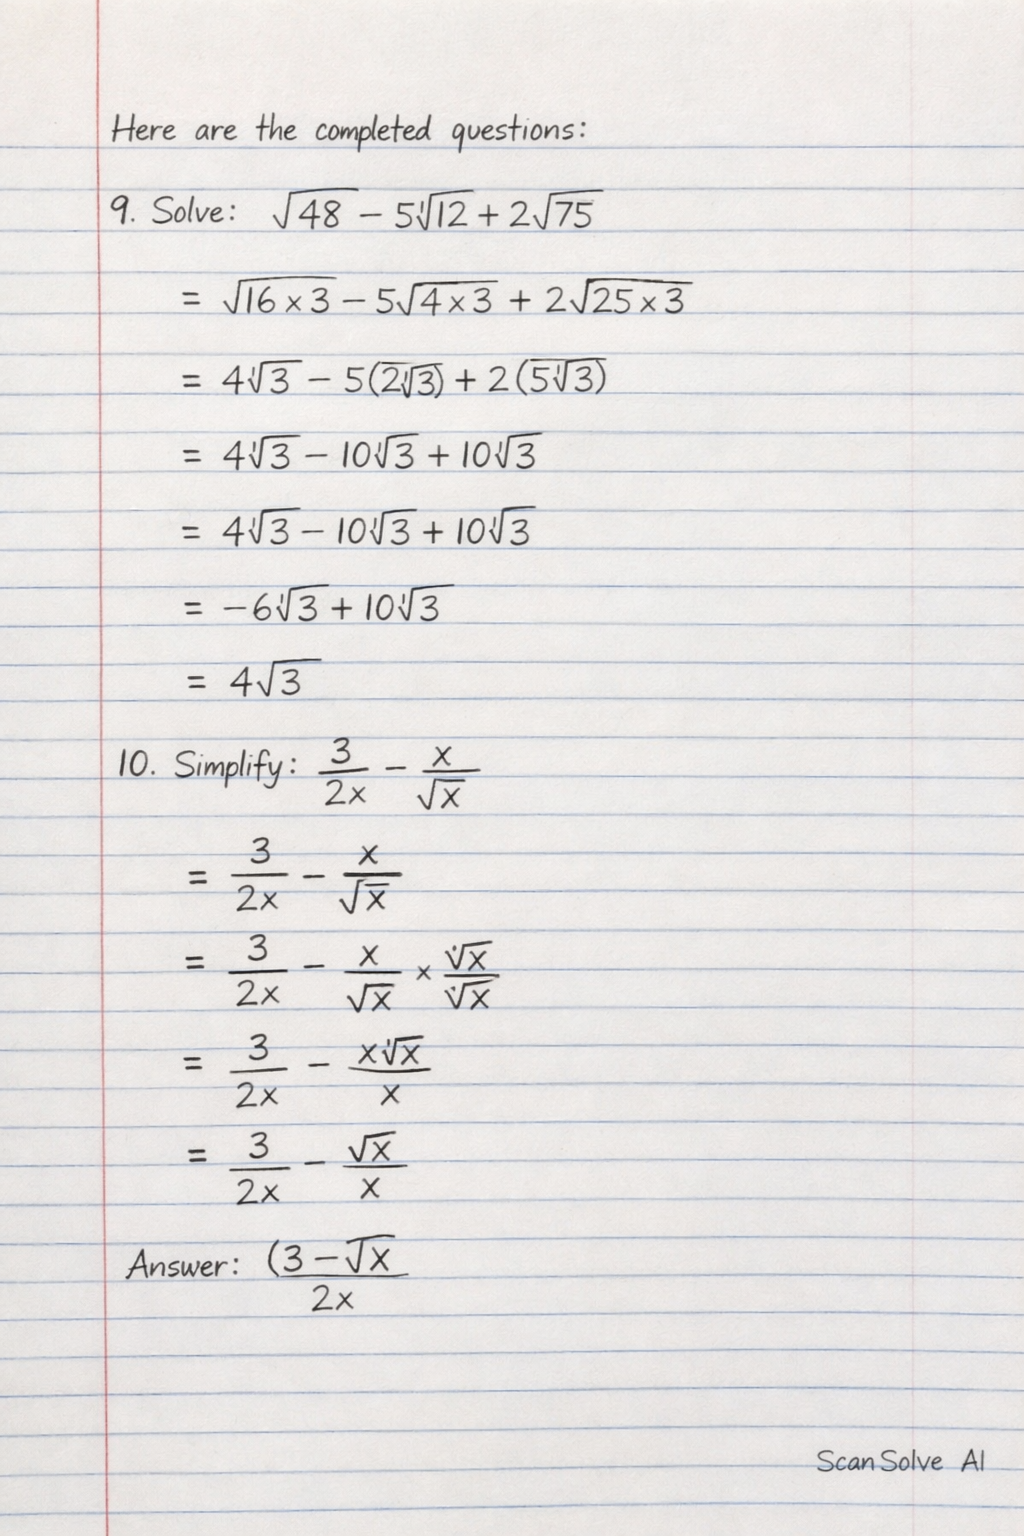 Here are the completed questions:
9. Solve: √48 − 5√12 + 2√75
= √16 × 3 − 5√4 × 3 + 2√25 × 3
= 4√3 − 5(2√3) + 2(5√3)
= 4√3 − 10√3 + 10√3
= 4√3 − 10√3 + 10√3
= −6√3 + 10√3
= 4√3
10. Simplify: 3/2x − x/√x
= 3/2x − x/√x
= 3/2x − x/√x × √x/√x
= 3/2x − x√x/x
= 3/2x − √x/x
Answer: (3 − √x/2x
ScanSolve AI